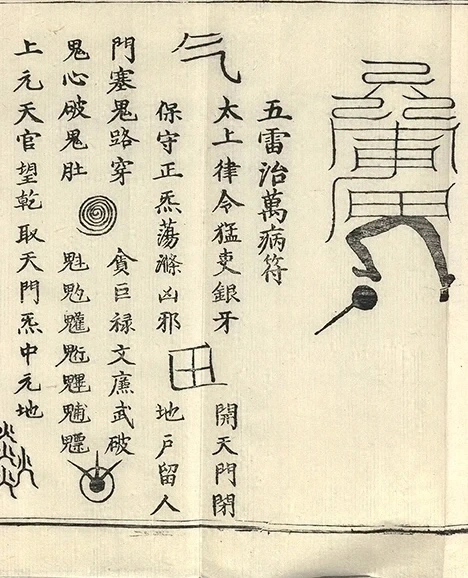 五雷治萬病符
太上律令猛吏銀牙
開天門閉
保守正炁蕩滌凶邪
地戶留人
門塞鬼路穿
貪巨祿文廉武破
鬼心破鬼肚
魁魓魒
上元天官望乾取天門炁中元地